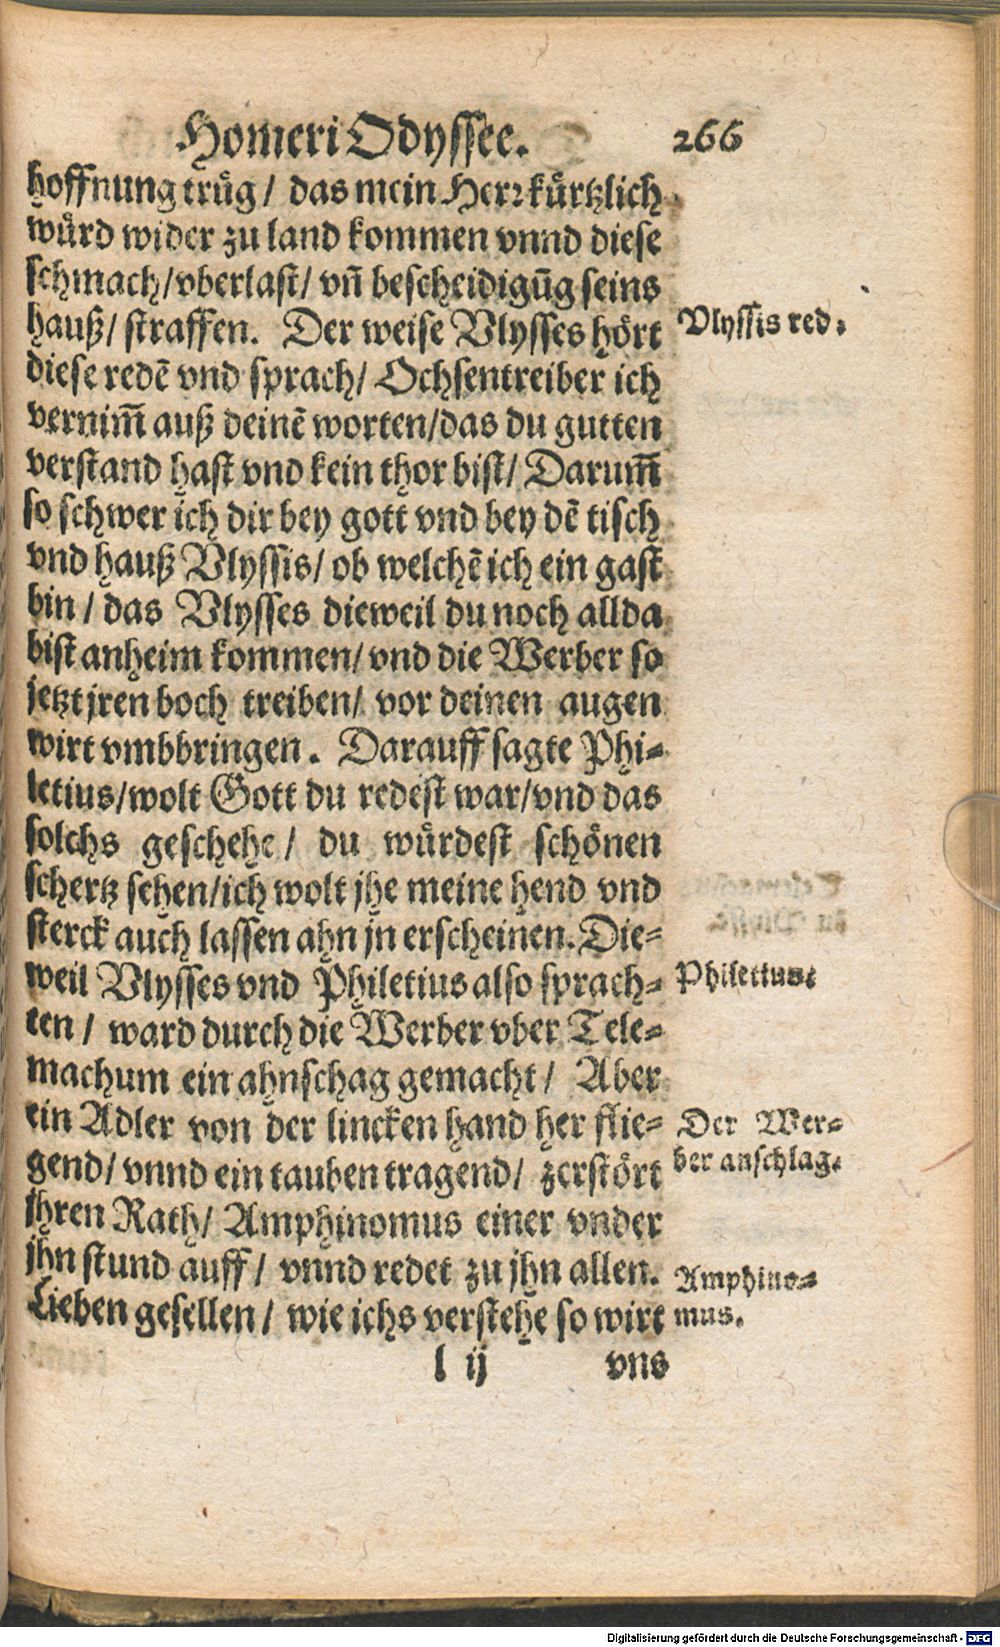 Homeri Odyssee. 266
hoffnung trüg / das mein Herr kürtzlich
würd wider zu land kommen vnnd diese
schmach / vberlast / vñ bescheidigũg seins
hauß / straffen. Der weise Vlysses hört
Vlyssis red.
diese redẽ vnd sprach / Ochsentreiber ich
vernim̃ auß deinẽ worten / das du gutten
verstand hast vnd kein thor bist / Darum̃
so schwer ich dir bey gott vnd bey dẽ tisch
vnd hauß Vlyssis / ob welchẽ ich ein gast
bin / das Vlysses dieweil du noch allda
bist anheim kommen / vnd die Werber so
jetzt jren boch treiben / vor deinen augen
wirt vmbbringen. Darauff sagte Phi-
letius / wolt Gott du redest war / vnd das
solchs geschehe / du würdest schönen
schertz sehen / ich wolt jhe meine hend vnd
sterck auch lassen ahn jn erscheinen. Die-
weil Vlysses vnd Philetius also sprach-
Philetius.
ten / ward durch die Werber vber Tele-
machum ein ahnschag gemacht / Aber
ein Adler von der lincken hand her flie-
Der Wer-
gend / vnnd ein tauben tragend / zerstört
ber anschlag.
jhren Rath / Amphinomus einer vnder
jhn stund auff / vnnd redet zu jhn allen.
Amphino-
Lieben gesellen / wie ichs verstehe so wirt
mus.
l ij vns
Digitalisierung gefördert durch die Deutsche Forschungsgemeinschaft - DFG